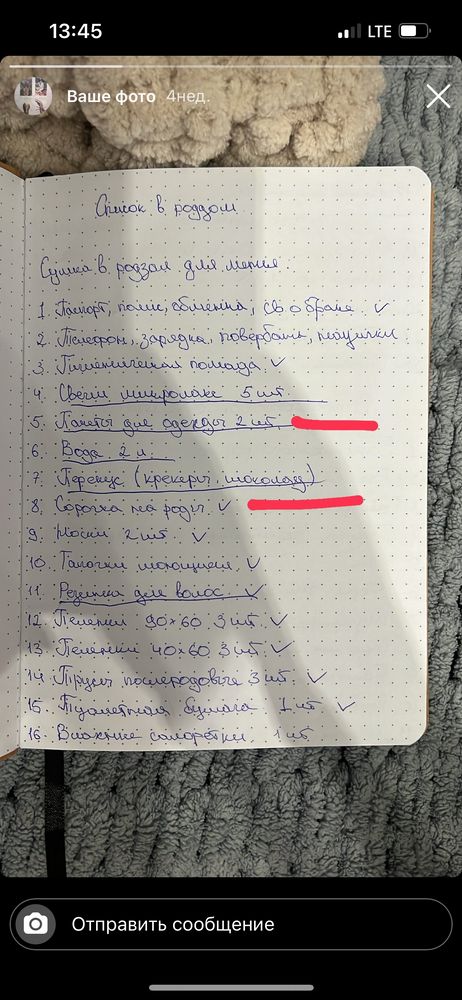 13:45
LTE
Ваше фото 4нед.
Список в роддом
Сумка в родзал для меня.
1. Паспорт, полис, обменка, св о браке. ✓
2. Телефон, зарядка, повербанк, наушники
3. Гигиеническая помада. ✓
4. Свечи микролакс 5 шт.
5. Пакеты для одежды 2 шт.
6. Вода 2 л.
7. Перекус (крекеры, шоколад)
8. Сорочка на роды. ✓
9. Носки 2 шт. ✓
10. Тапочки моющиеся. ✓
11. Резинка для волос. ✓
12. Пеленки 90×60 3 шт. ✓
13. Пеленки 40×60 3 шт. ✓
14. Трусы послеродовые 3 шт. ✓
15. Туалетная бумага 1 шт ✓
16. Влажные салфетки 1 шт
Отправить сообщение